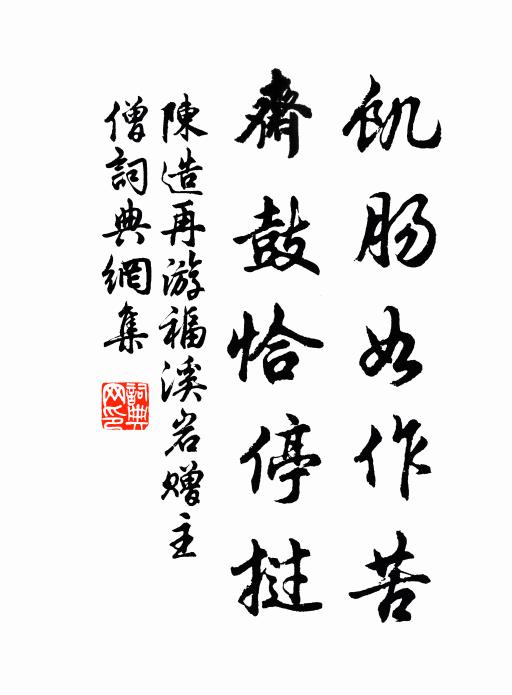 飢肠如作苦
齋鼓恰停撾
陳造再游福溪岩赠主
僧詞典網集
詞典
网印